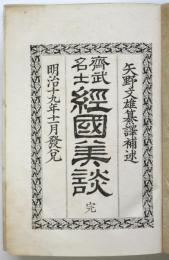 矢野文雄纂譯補述
齊武名士
經國美談
完
明治十九年十二月發兌